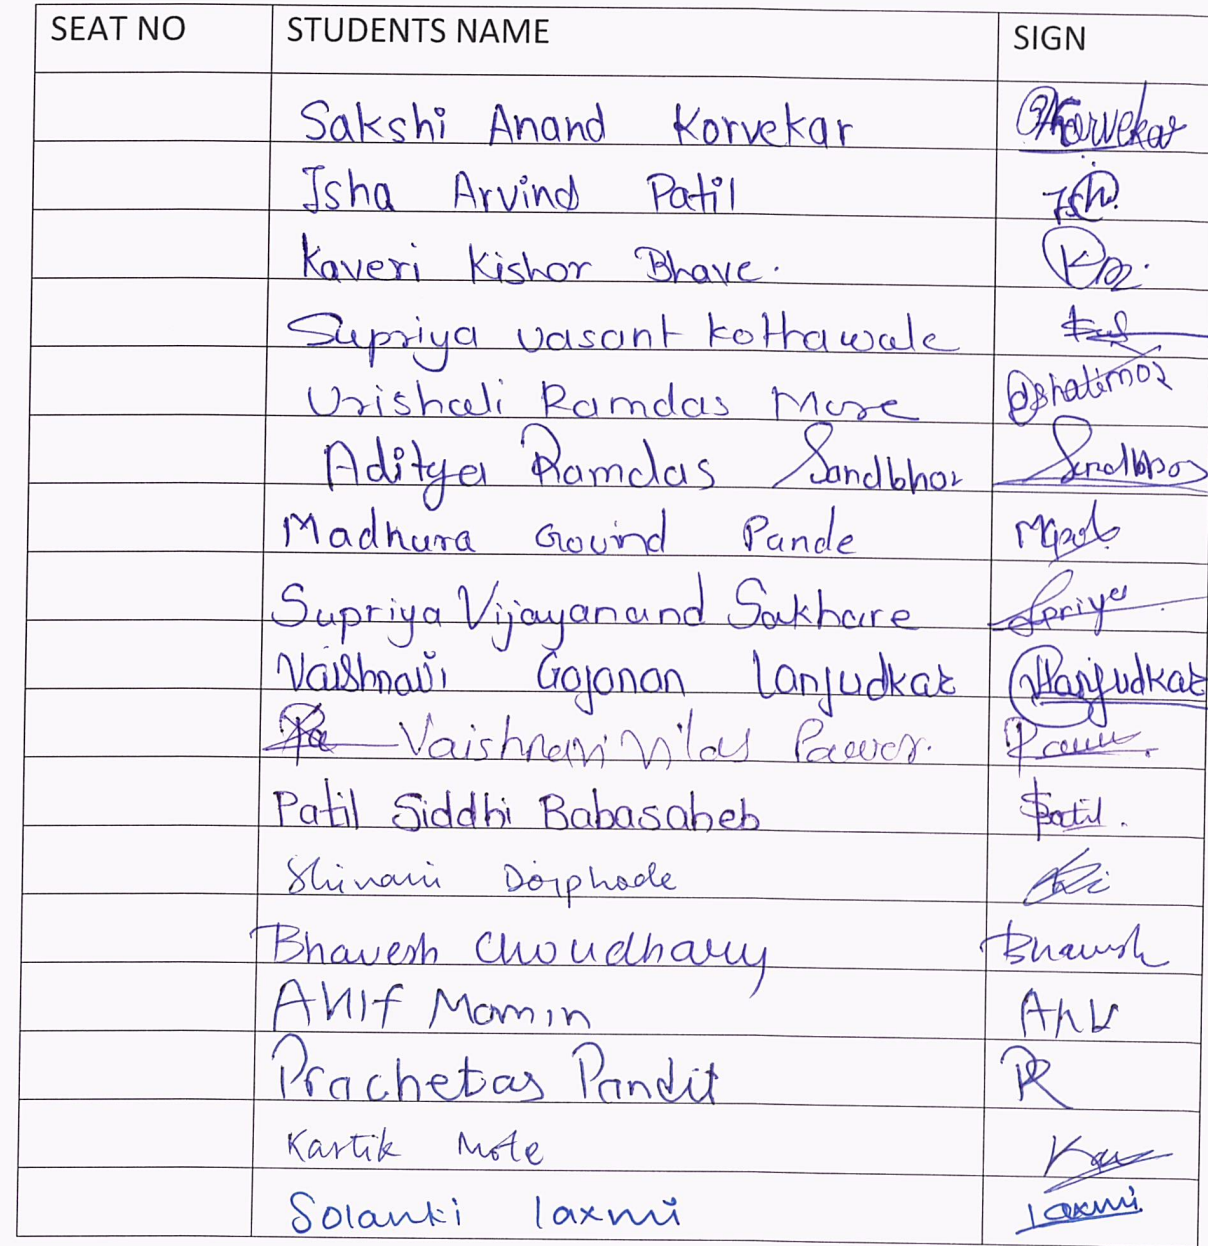 SEAT NO STUDENTS NAME SIGN
Sakshi Anand Korvekar Korvekar
Isha Arvind Patil Ish
Kaveri Kishor Bhave.
Supriya vasant kothawale
Vrishali Ramdas More
Aditya Ramdas Sandbhor Sandbhor
Madhura Govind Pande
Supriya Vijayanand Sakhare
Vaishnavi Gajanan Lanjudkar Lanjudkar
Vaishnavi Vilas Pawar.
Patil Siddhi Babasaheb Patil.
Shivani Doiphode
Bhavesh Choudhary Bhavesh
Arif Momin
Prachetas Pandit
Kartik Mote
Solanki laxmi laxmi